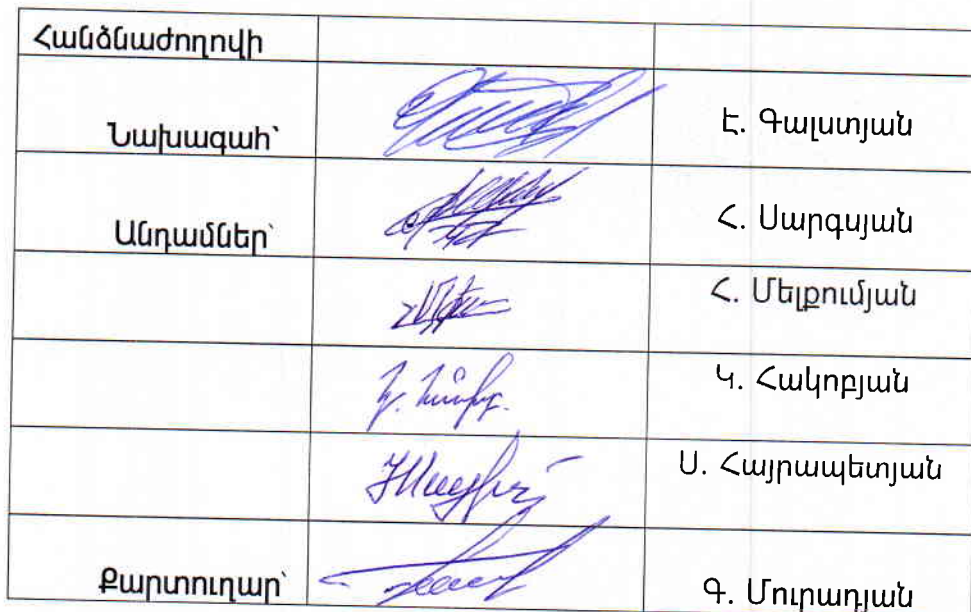 Հանձնաժողովի
Նախագահ՝ Է. Գալստյան
Անդամներ՝ Հ. Սարգսյան
Հ. Մելքումյան
Կ. Հակոբյան
Ս. Հայրապետյան
Քարտուղար՝ Գ. Մուրադյան